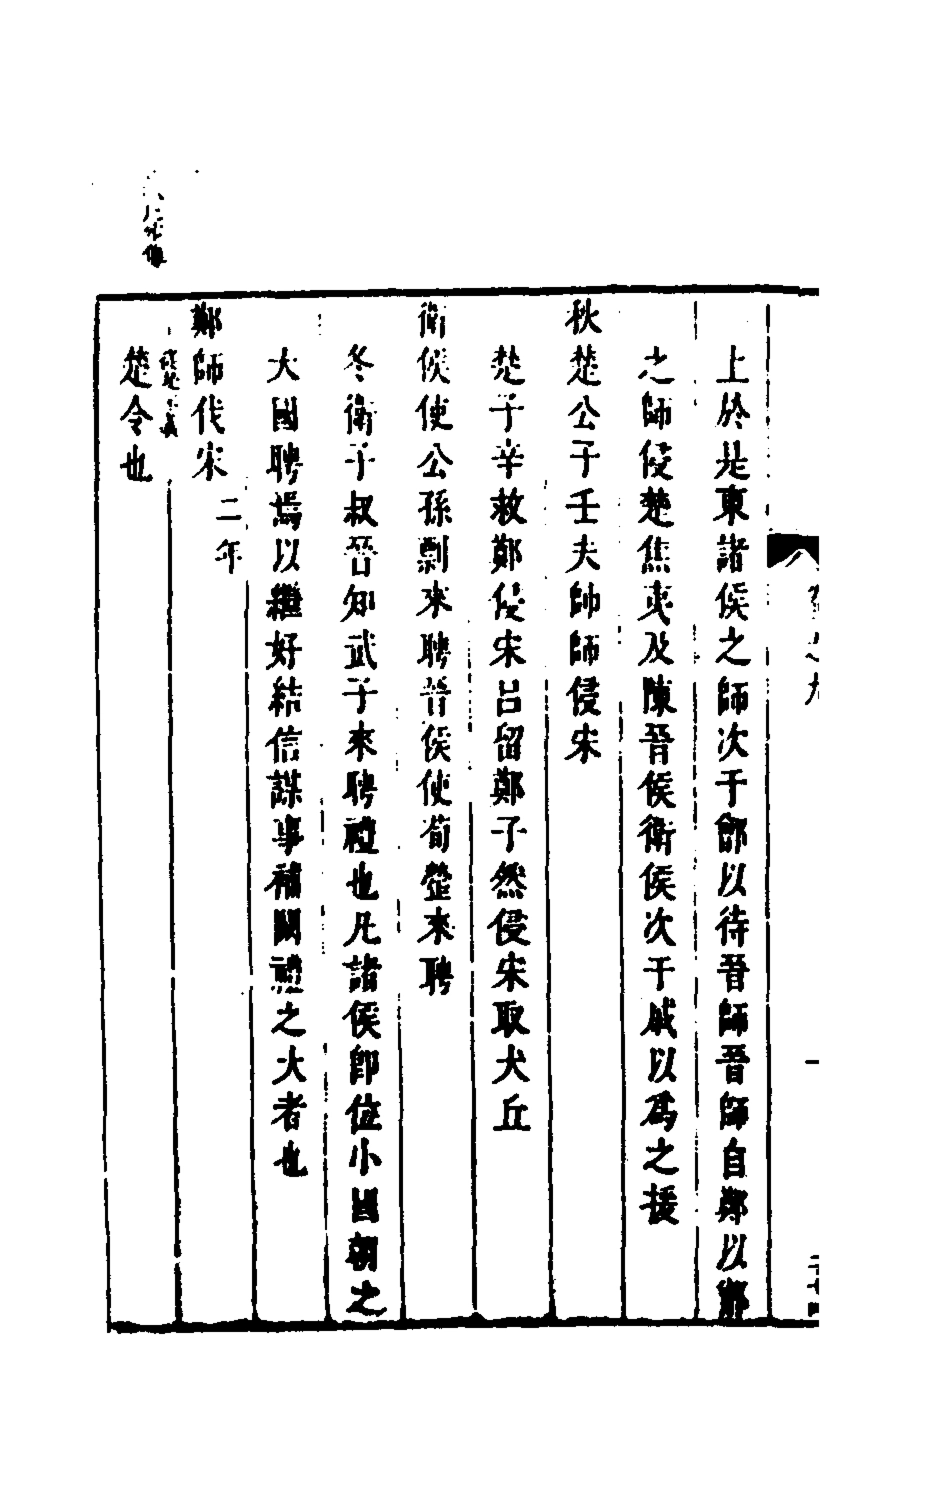 上於是東諸侯之師次于鄫以待晉師晉師自鄭以鄫
之師侵楚焦夷及陳晉侯衛侯次于戚以爲之援
秋楚公子壬夫帥師侵宋
楚子辛救鄭侵宋呂留鄭子然侵宋取犬丘
衛侯使公孫剽來聘晉侯使荀罃來聘
冬衛子叔晉知武子來聘禮也凡諸侯卽位小國朝之
大國聘焉以繼好結信謀事補闕禮之大者也
鄭師伐宋
二年
楚令也